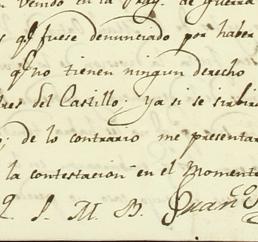 venido en la Frag. de guerra
s qe. fuese denunciado por haber
qe. no tienen ningun derecho
dres del Castillo; ya si se sirbie
o; de lo contrario me presentar
la contestacion en el momento
2. S. M. B. Juanco.